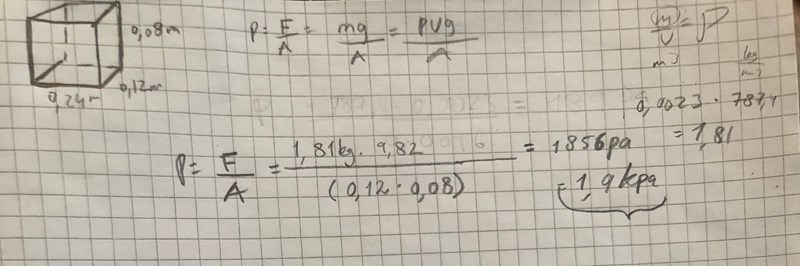 0,08m
0,12m
0,24m
P = F/A = mg/A = ρVg/A
m/V = ρ
m³
kg/m³
0,0023 · 787,4
= 1,81
P = F/A = 1,81kg · 9,82/(0,12 · 0,08) = 1856pa
= 1,9kpa